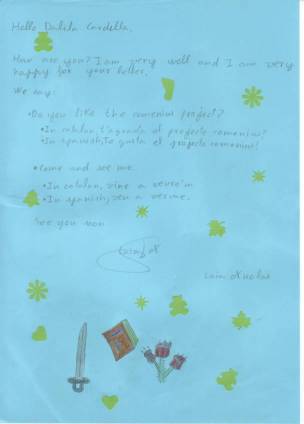 Hello Dalila Cardella.
How are you? I am very well and I am very
happy for your letter.
We say:
•Do you like the comenius project?
•In catalan, t'agrada el projecte comenius?
•In spanish, Te gusta el projecte comenius?
•Come and see me.
•In catalan, vine a veure'm
•In spanish, ven a verme.
See you soon